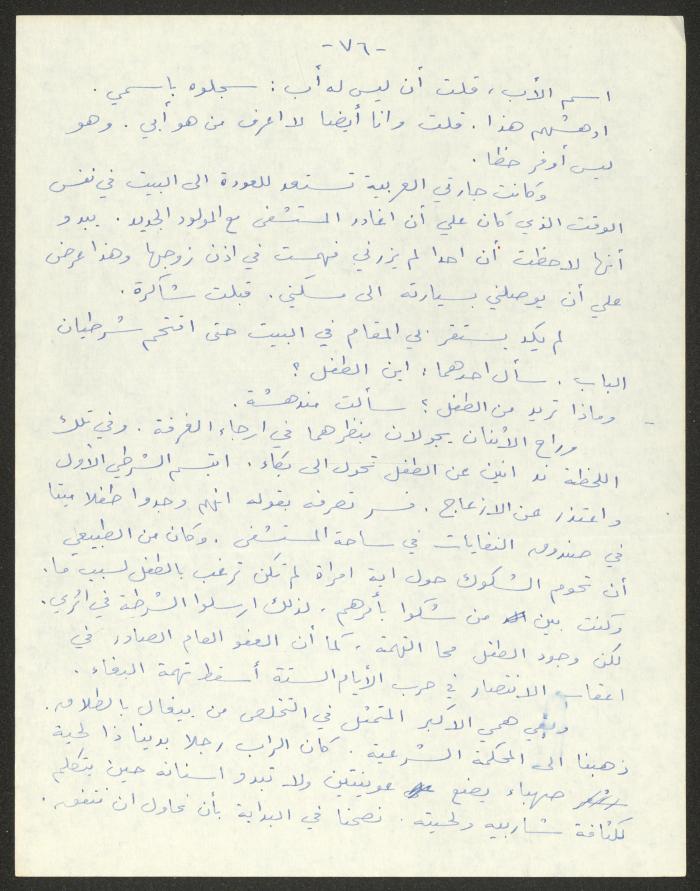 -٧٦-
اسم الأب، قلت أن ليس له أب: سجلوه باسمي.
ادهشهم هذا. قلت وانا أيضا لا اعرف من هو أبي. وهو
ليس أوفر حظا.
وكانت جارتي العربية تستعد للعودة الى البيت في نفس
الوقت الذي كان علي أن اغادر المستشفى مع المولود الجديد. يبدو
أنها لاحظت أن احدا لم يزرني فهمست في اذن زوجها وهذا عرض
علي أن يوصلني بسيارته الى مسكني. قبلت شاكرة.
لم يكد يستقر بي المقام في البيت حتى اقتحم شرطيان
الباب. سأل احدهما: اين الطفل؟
وماذا تريد من الطفل؟ سألت مندهشة.
وراح الاثنان يجولان بنظرهما في ارجاء الغرفة. وفي تلك
اللحظة ند انين عن الطفل تحول الى بكاء. ابتسم الشرطي الأول
واعتذر عن الازعاج. فسر تصرفه بقوله انهم وجدوا طفلا ميتا
في صندوق النفايات في ساحة المستشفى. وكان من الطبيعي
أن تحوم الشكوك حول اية امرأة لم تكن ترغب بالطفل لسبب ما.
وكنت بين من شكوا بأمرهم. لذلك ارسلوا الشرطة في اثري.
لكن وجود الطفل محا التهمة، كما أن العفو العام الصادر في
اعقاب الانتصار في حرب الأيام الستة أسقط تهمة البغاء.
وبقي همي الاكبر المتمثل في التخلص من بيغال بالطلاق.
ذهبنا الى المحكمة الشرعية. كان الراب رجلا بدينا ذا لحية
صهباء يضع عوينتين ولا تبدو اسنانه حين يتكلم
لكثافة شاربيه ولحيته. نصحنا في البداية بأن نحاول ان نتفق.